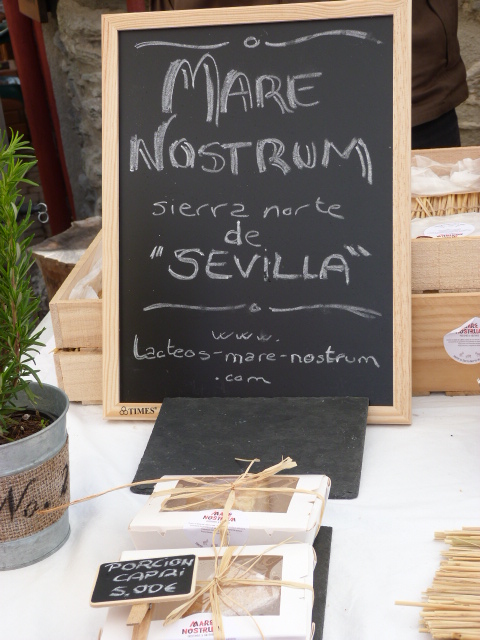 MARE
NOSTRUM
sierra norte
de
"SEVILLA"
www.
Lacteos-mare-nostrum
.com
TIMES
No.
MARE
NOSTRUM
PORCION
CAPRI
5.00€
MARE
NOSTRUM
MARE
NOSTRUM